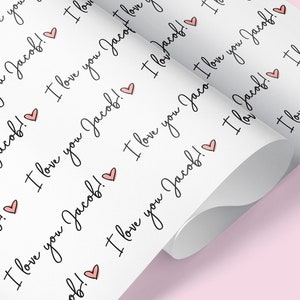 I love you Jacob!
I love you Jacob!
I love you Jacob!
I love you Jacob!
I love you Jacob!
I love you Jacob!
I love you Jacob!
I love you Jacob!